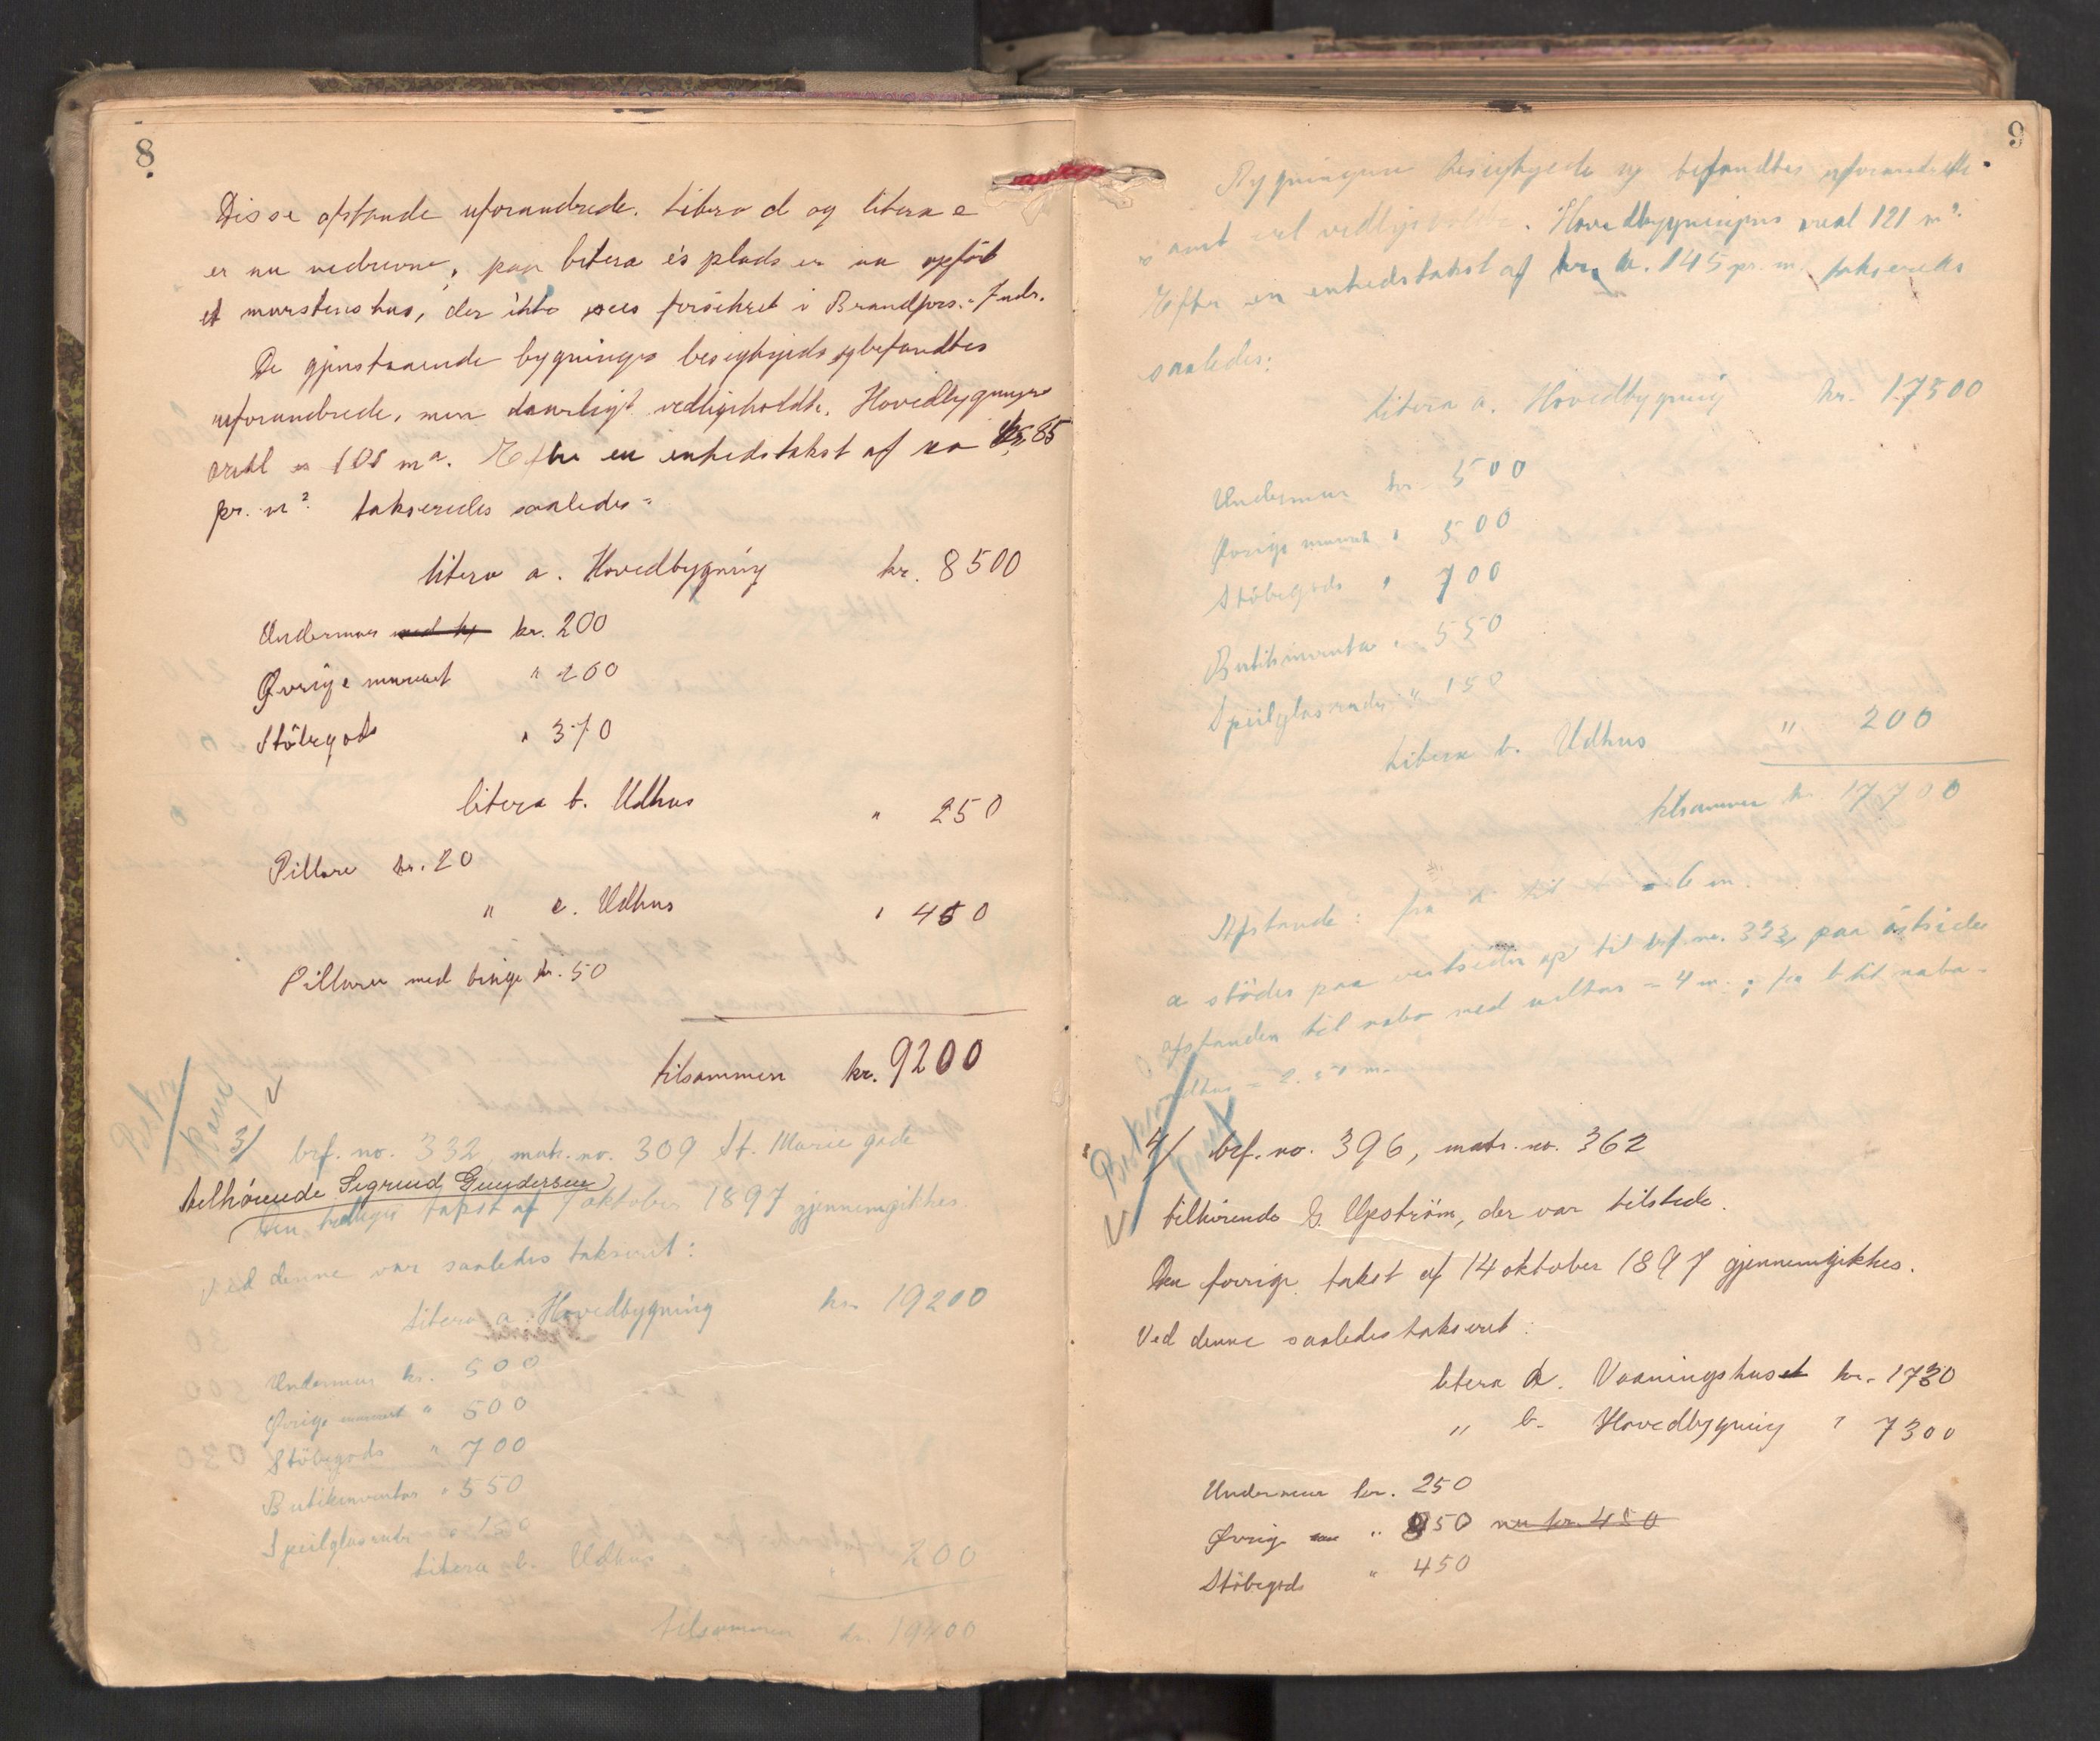 8.
Disse afstande uforandrede. Litera d og litera e
er nu nedrevne, paa litera e's plads er nu opført
et murstenshus, der ikke sees forsikret i Brandfors.-Indr.
De gjenstaaende bygninger besigtigedes og befandtes
uforandrede, men daarligt vedligeholdte. Hovedbygningens
areal er 101 m². Efter en enhedstakst af kr. 85
pr. m² takseredes saaledes:
litera a. Hovedbygning kr. 8500
Undermur kr. 200
Øvrige murværk " 200
Støbegods " 370
litera b. Udhus " 250
Pillare kr. 20
" c. Udhus " 450
Pillarer med binge kr. 50
tilsammen kr. 9200
3/ brf. no. 332, matr. no. 309 St. Marie gade
tilhørende Sigrud Gundersen
Den tidligere takst af 7 oktober 1897 gjennemgikkes.
Ved denne var saaledes takseret:
Litera a. Hovedbygning kr. 19200
Undermur kr. 500
Øvrige murværk " 500
Støbegods " 700
Butikinventar " 550
Speilglasruder " 150
Litera b. Udhus " 200
tilsammen kr. 19400
9
Bygningerne besigtigede og befandtes uforandrede
samt vel vedligeholdte. Hovedbygningens areal 121 m².
Efter en enhedstakst af kr. 145 pr. m² takseredes
saaledes:
Litera a. Hovedbygning kr. 17500
Undermur kr. 500
Øvrige murværk " 500
Støbegods " 700
Butikinventar " 550
Speilglasruder " 150
Litera b. Udhus " 200
tilsammen kr. 17700
Afstande: fra a til = 6 m.
a støder paa vestsiden op til brf. no. 333, paa østsiden
afstanden til nabo med udhus = 4 m.; fra b til nabo-
udhus = 2.50 m.
4/ brf. no. 396, matr. no. 362
tilhørende G. Upström, der var tilstede.
Den forrige takst af 14 oktober 1897 gjennemgikkes.
Ved denne saaledes takseret:
litera a. Vaaningshuset kr. 1730
" b. Hovedbygning " 7300
Undermur kr. 250
Øvrige mur " 950 nu kr. 450
Støbegods " 450